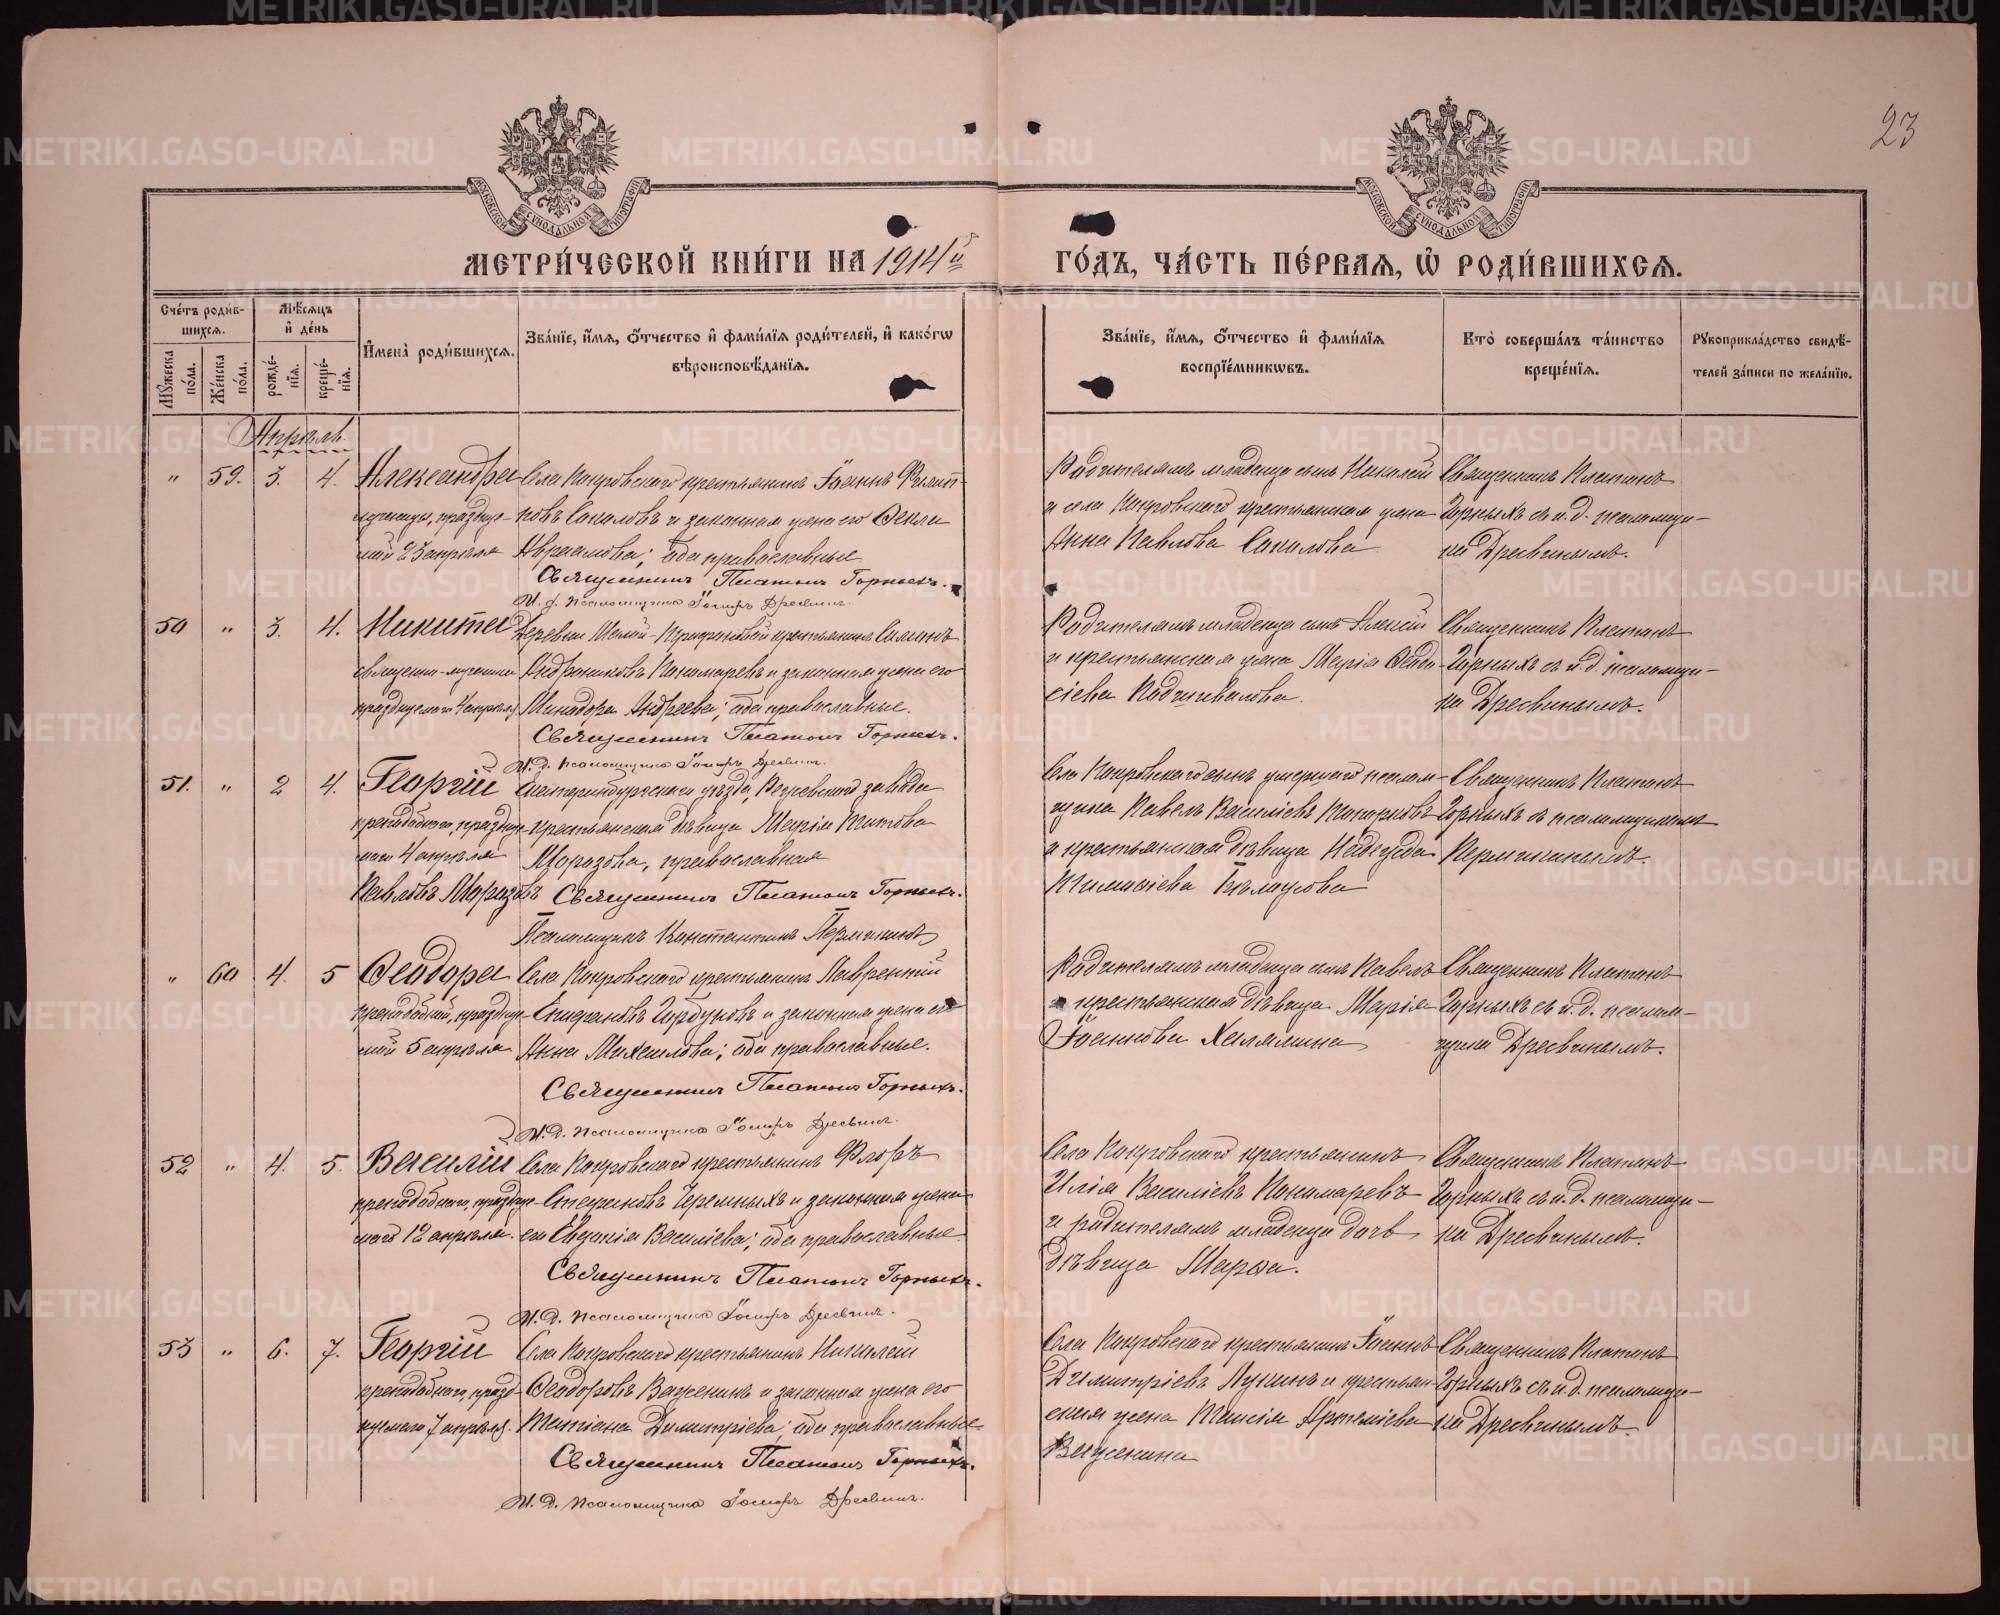 23
МЕТРИ́ЧЕСКОЙ КНИ́ГИ НА 1914й ГО́ДЪ, ЧА́СТЬ ПЕ́РВАЯ, Ѡ РОДИ́ВШИХСЯ.
Сче́тъ роди́вшихся.
Мѣ́сяцъ и де́нь
Имена̀ роди́вшихся.
Зва́нїе, и́мя, о́тчество и фами́лїя роди́телей, и како́гѡ вѣроисповѣ́данїя.
Зва́нїе, и́мя, о́тчество и фами́лїя воспрїе́мникѡвъ.
Кто̀ соверша́лъ та́инство креще́нїя.
Рукоприкла́дство свидѣ́телей за́писи по жела́нїю.
Му́жеска по́ла.
Же́нска по́ла.
рожде́нїя.
креще́нїя.
Апрѣль
" 59. 3. 4. Александра
мученицы, праздную-
мой 23 апрѣля
Села Покровскаго крестьянинъ Іоаннъ Филип-
повъ Соколовъ и законная жена его Ѳекла
Авраамова; оба православные
Священникъ Платонъ Горныхъ.
И. д. псаломщика Іосифъ Дресвинъ.
Родителямъ младенца сынъ Николай
и села Покровскаго крестьянская жена
Анна Павлова Соколова
Священникъ Платонъ
Горныхъ съ и. д. псаломщи-
ка Дресвинымъ.
50 " 3. 4. Никита
священно-мученика
празднуемаго 4 апрѣля
Деревни Малой-Трифоновой крестьянинъ Симонъ
Андрониковъ Пономаревъ и законная жена его
Минодора Андреева; оба православные.
Священникъ Платонъ Горныхъ.
И. д. псаломщика Іосифъ Дресвинъ.
Родителямъ младенца сынъ Алексій
и крестьянская жена Марія Ѳеодо-
сіева Подшивалова.
Священникъ Платонъ
Горныхъ съ и. д. псаломщи-
ка Дресвинымъ.
51. " 2 4. Георгій
преподобнаго, праздну-
маго 4 апрѣля
Павловъ Морозовъ
Екатеринбургскаго уѣзда, Режевскаго завода
крестьянская дѣвица Марія Титова
Морозова, православная
Священникъ Платонъ Горныхъ.
Псаломщикъ Константинъ Пермикинъ
Села Покровскаго сынъ умершаго псалом-
щика Павелъ Василіевъ
и крестьянская дѣвица Надежда
Тимоѳіева Бѣлоусова
Священникъ Платонъ
Горныхъ съ псаломщикомъ
Пермикинымъ.
" 60 4. 5 Ѳеодора
преподобной, праздную-
мой 5 апрѣля
Села Покровскаго крестьянинъ Лаврентій
Стефановъ Горбуновъ и законная жена его
Анна Михаилова; оба православные.
Священникъ Платонъ Горныхъ.
И. д. псаломщика Іосифъ Дресвинъ.
Родителямъ младенца сынъ Павелъ
и крестьянская дѣвица Марія
Іоаннова Халямина
Священникъ Платонъ
Горныхъ съ и. д. псалом-
щика Дресвинымъ.
52 " 4. 5. Василій
преподобнаго, праздну-
маго 12 апрѣля.
Села Покровскаго крестьянинъ Флоръ
Стефановъ Черемныхъ и законная жена
его Евгенія Василіева; оба православные.
Священникъ Платонъ Горныхъ.
И. д. псаломщика Іосифъ Дресвинъ.
Села Покровскаго крестьянинъ
Илія Василіевъ Пономаревъ
и родителямъ младенца дочь
дѣвица Марѳа.
Священникъ Платонъ
Горныхъ съ и. д. псаломщи-
ка Дресвинымъ.
53 " 6. 7. Георгій
преподобнаго, празд-
нуемаго 7 апрѣля.
Села Покровскаго крестьянинъ Николай
Ѳеодоровъ Важенинъ и законная жена его
Татіана Димитріева; оба православные.
Священникъ Платонъ Горныхъ.
И. д. псаломщика Іосифъ Дресвинъ.
Села Покровскаго крестьянинъ Іоаннъ
Димитріевъ Лукинъ и крестьян-
ская жена Таисія Артеміева
Важенина
Священникъ Платонъ
Горныхъ съ и. д. псаломщи-
ка Дресвинымъ.
METRIKI.GASO-URAL.RU